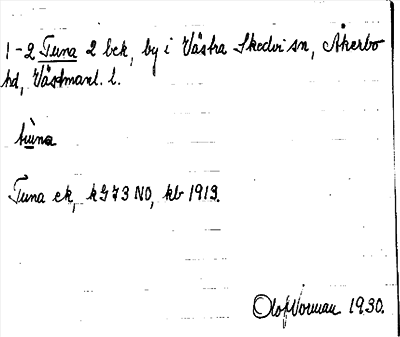 1-2 Tuna 2 bek, by i Västra Skedvi sn, Åkerbo
hd, Västmanl. l.
tùna
Tuna ek, k G73 NO, kb 1913.
Olof Norman 1930.